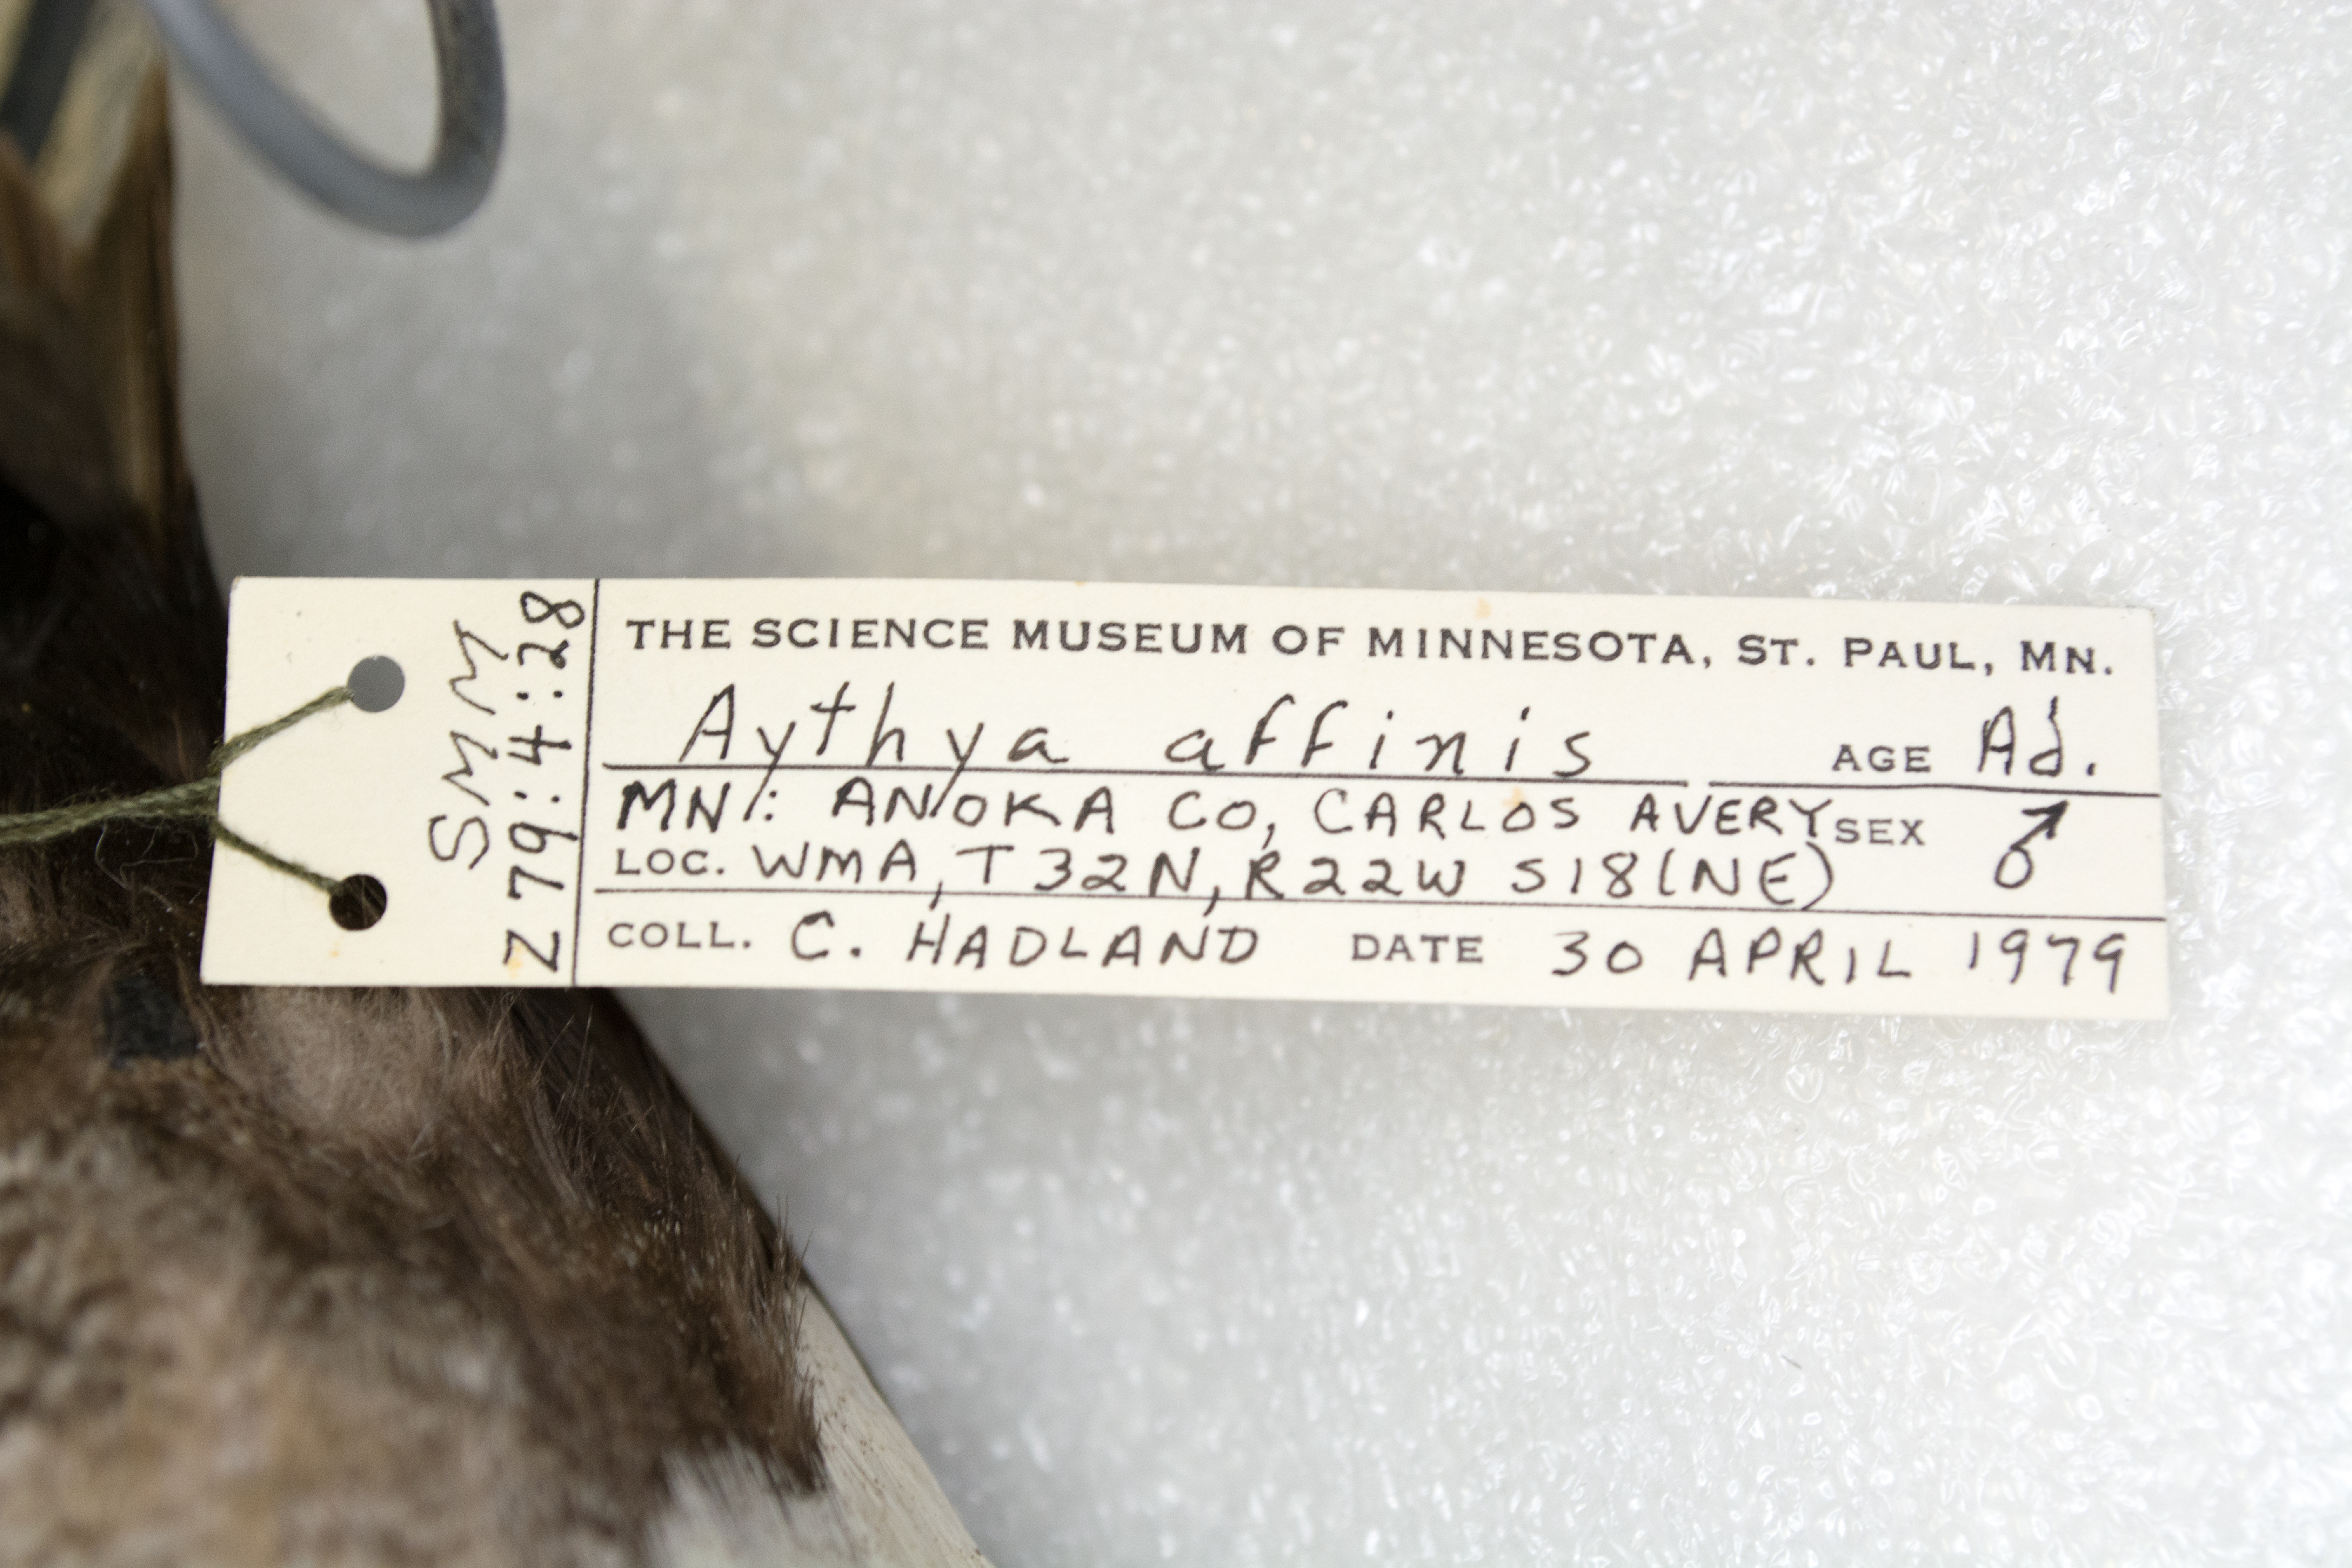 SMM
Z79:4:28
THE SCIENCE MUSEUM OF MINNESOTA, ST. PAUL, MN.
Aythya affinis AGE Ad.
MN: ANOKA CO, CARLOS AVERY SEX ♂
LOC. WMA, T32N, R22W S18(NE)
COLL. C. HADLAND DATE 30 APRIL 1979